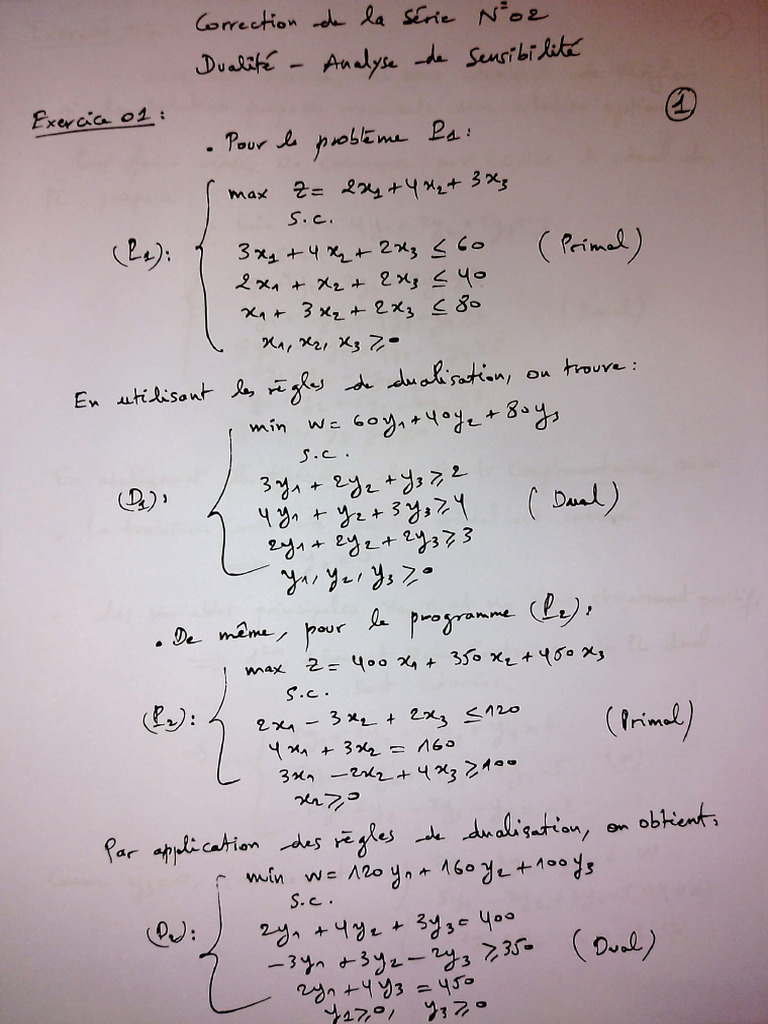 Correction de la série N°02
Dualité - Analyse de Sensibilité
Exercice 01 :
①
• Pour le problème P1 :
max Z = 2x1 + 4x2 + 3x3
s.c.
(P1) :
3x1 + 4x2 + 2x3 ≤ 60 (Primal)
2x1 + x2 + 2x3 ≤ 40
x1 + 3x2 + 2x3 ≤ 80
x1, x2, x3 ≥ 0
En utilisant les règles de dualisation, on trouve :
min W = 60y1 + 40y2 + 80y3
s.c.
3y1 + 2y2 + y3 ≥ 2
(D1) :
4y1 + y2 + 3y3 ≥ 4 (Dual)
2y1 + 2y2 + 2y3 ≥ 3
y1, y2, y3 ≥ 0
• De même, pour le programme (P2) :
max Z = 400x1 + 350x2 + 450x3
s.c.
(P2) :
2x1 - 3x2 + 2x3 ≤ 120 (Primal)
4x1 + 3x2 = 160
3x1 - 2x2 + 4x3 ≥ 100
x2 ≥ 0
Par application des règles de dualisation, on obtient :
min W = 120y1 + 160y2 + 100y3
s.c.
(D2) :
2y1 + 4y2 + 3y3 = 400
-3y1 + 3y2 - 2y3 ≥ 350 (Dual)
2y1 + 4y3 = 450
y1 ≥ 0, y3 ≥ 0